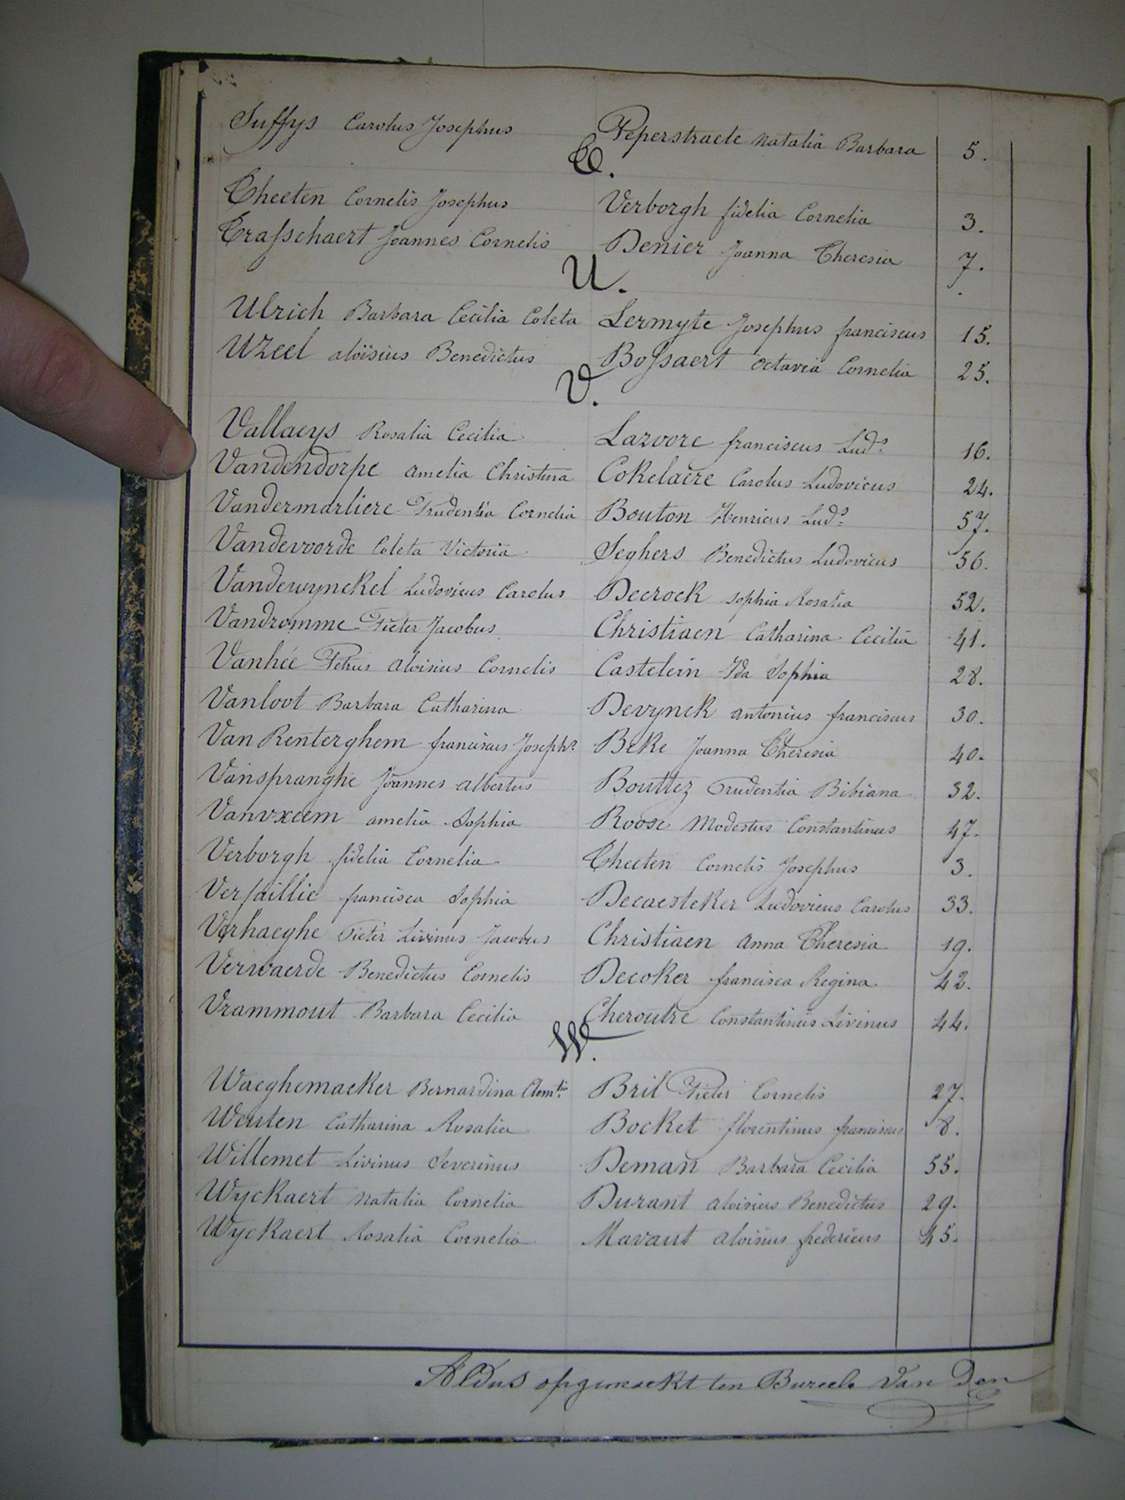 Suffys Carolus Josephus Peperstraete Natalia Barbara 5.
T.
Theeten Cornelis Josephus Verborgh fidelia Cornelia 3.
Trasschaert Joannes Cornelis Denier Joanna Theresia 7.
U.
Ulrich Barbara Cecilia Coleta Lermyte Josephus franciscus 15.
Uzeel aloïsius Benedictus Bossaert octavia Cornelia 25.
V.
Vallaeys Rosalia Cecilia Lazoore franciscus Luds 16.
Vandendorpe amelia Christina Cokelaere Carolus Ludovicus 24.
Vandermarliere Prudentia Cornelia Bouton Henricus Luds 57.
Vandevoorde Coleta Victoria Seghers Benedictus Ludovicus 56.
Vandewynckel Ludovicus Carolus Decrock sophia Rosalia 52.
Vandromme Pieter Jacobus Christiaen Catharina Cecilia 41.
Vanhée Petrus aloisius Cornelis Castelein Ida Sophia 28.
Vanloot Barbara Catharina Devynck antonius franciscus 30.
Van Renterghem franciscus Josephs Beke Joanna Theresia 40.
Vanspranghe Joannes albertus Bouttez Prudentia Bibiana 32.
Vanvxeem amelia Sophia Roose Modestus Constantinus 47.
Verborgh fidelia Cornelia Theeten Cornelis Josephus 3.
Versaillie francisca Sophia Decaesteker Ludovicus Carolus 33.
Verhaeghe Pieter Livinus Jacobus Christiaen anna Theresia 19.
Verwaerde Benedictus Cornelis Decoker francisca Regina 42.
Vrammout Barbara Cecilia Cheroutre Constantinus Livinus 44.
W.
Waeghemaeker Bernardina Clemta Bril Pieter Cornelis 27.
Wouten Catharina Rosalia Bocket florentinus franciscus 8.
Willemet Livinus Severinus Deman Barbara Cecilia 55.
Wyckaert Natalia Cornelia Durant aloisius Benedictus 29.
Wyckaert Rosalia Cornelia Mavaut aloisius fredericus 45.
Aldus opgemaekt ten Bureele Van Den